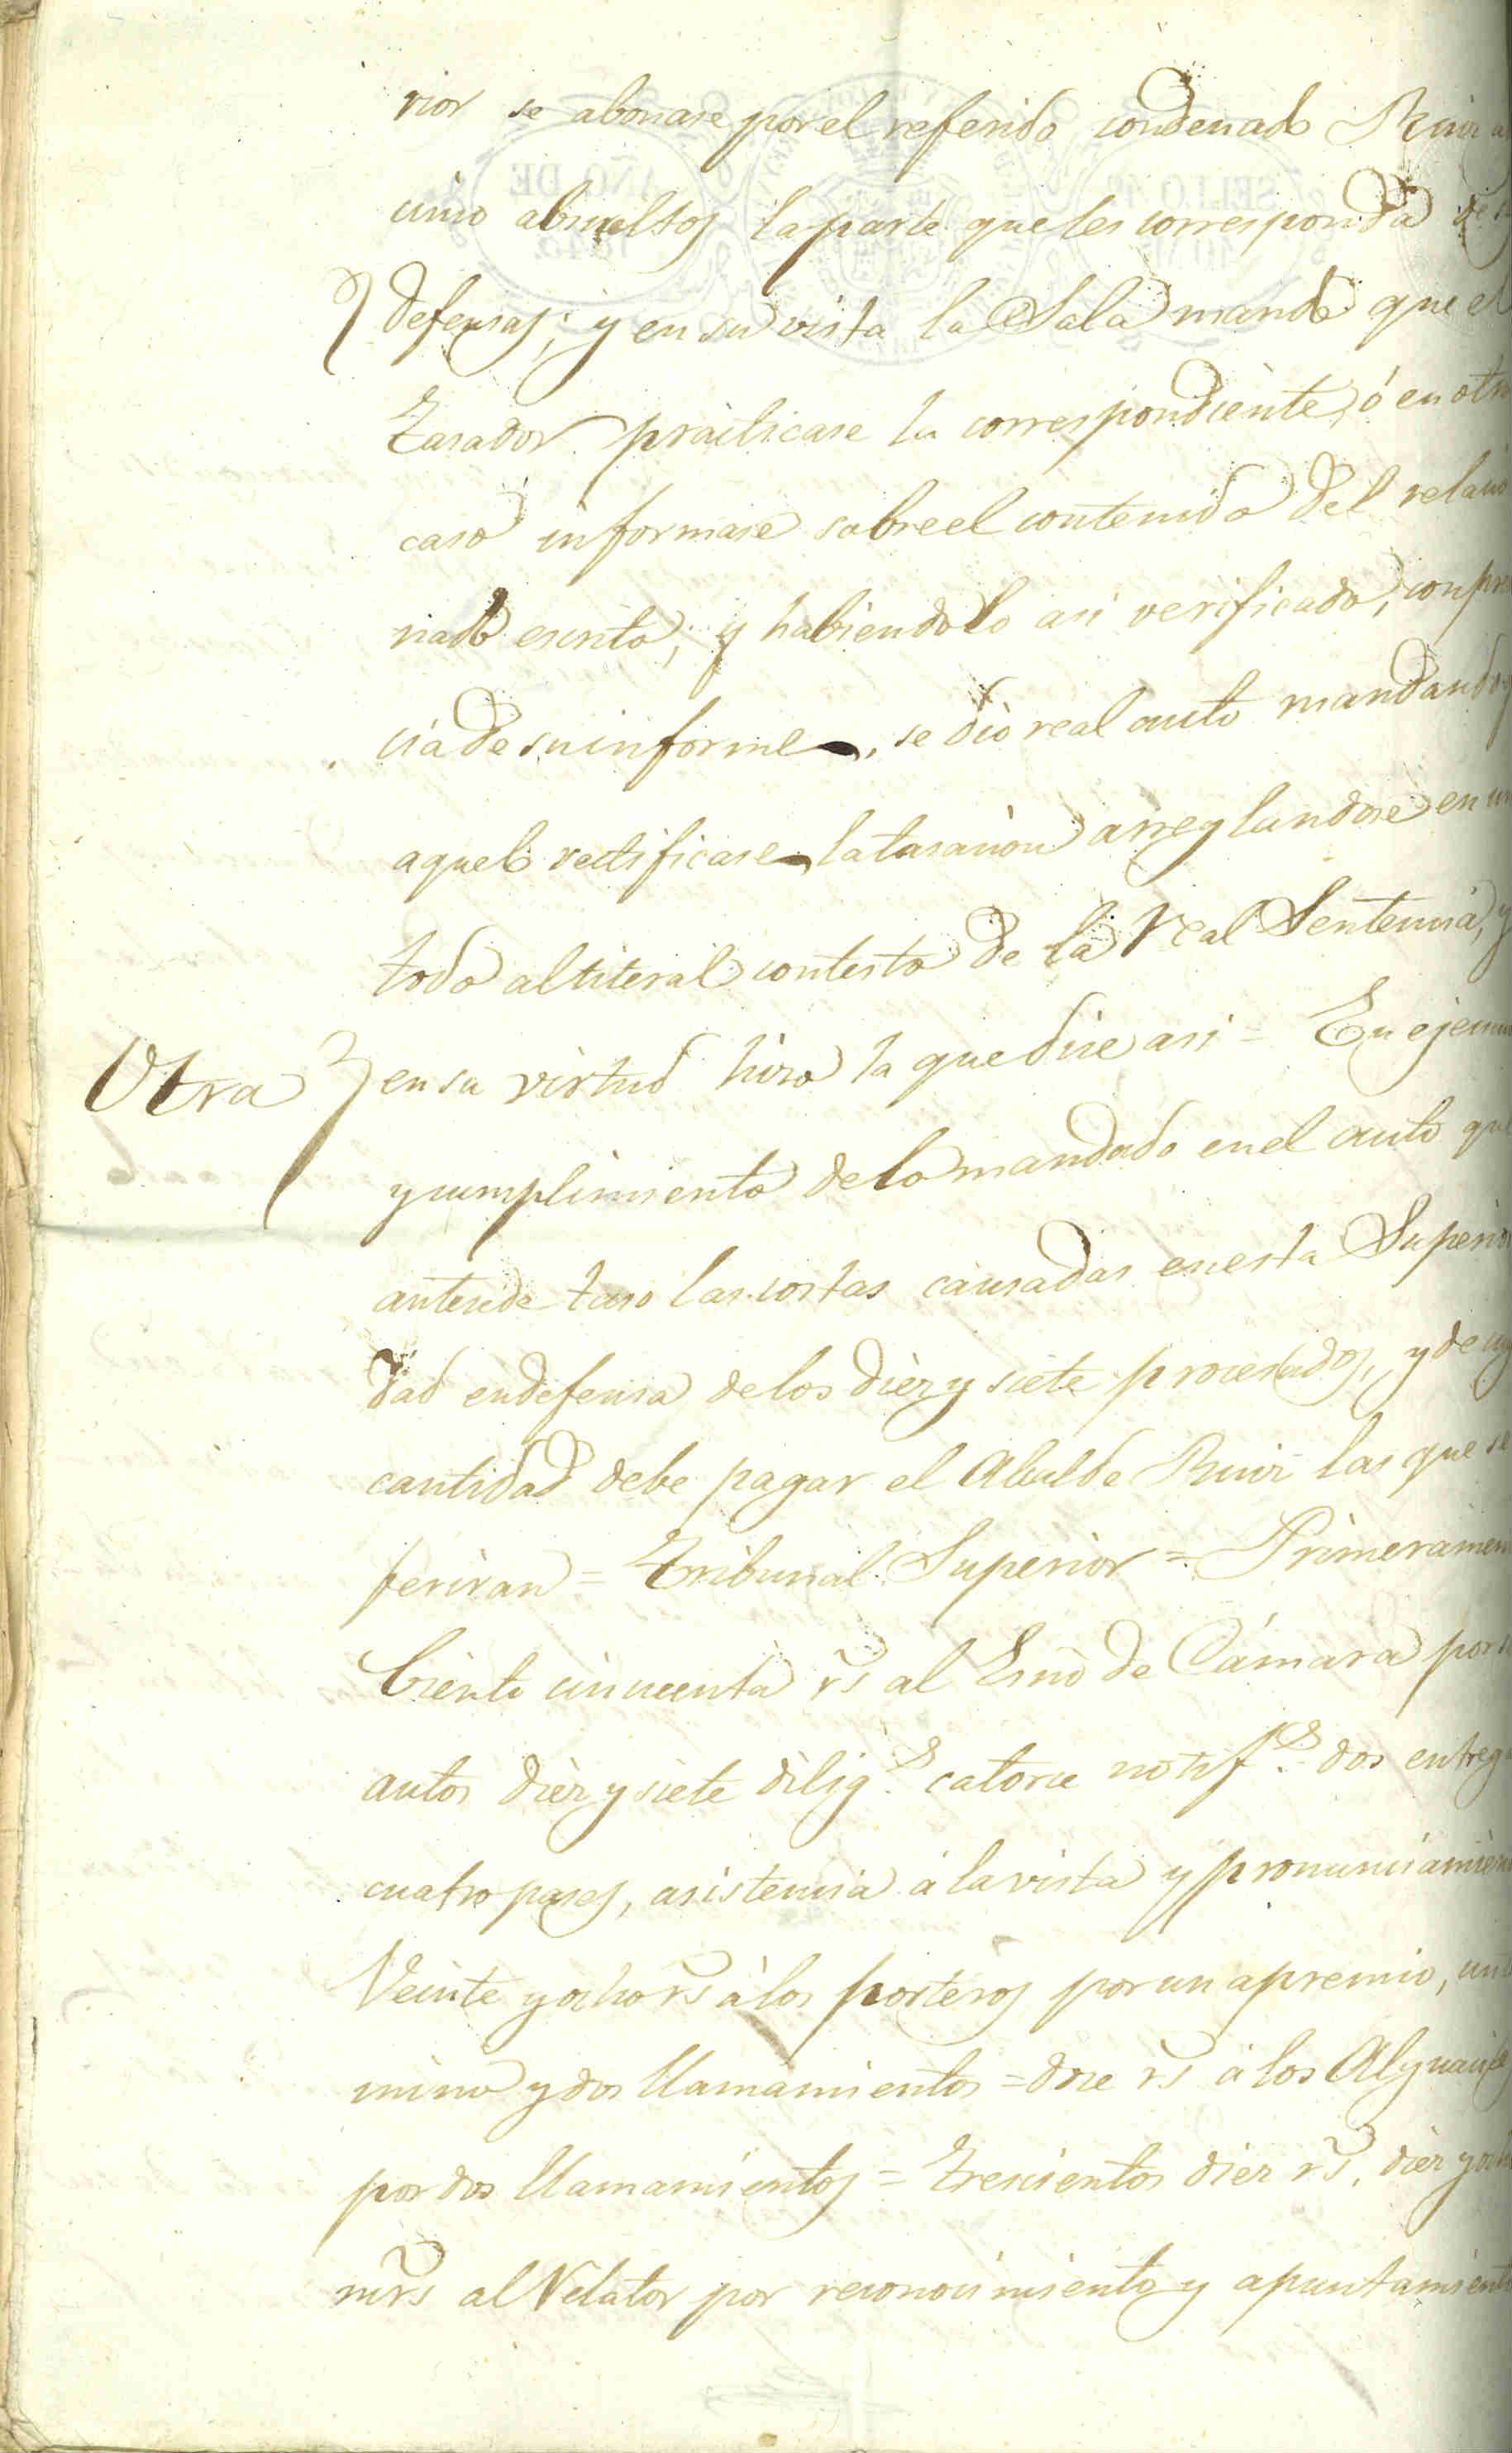 rior se abonase por el referido condenado Ruiz a
cinco absueltos la parte que les corresponda de
defensas; y en su vista la Sala mandó que el
tasador practicase la correspondiente, ó en otro
caso informase sobre el contenido del relacio
nado escrito; y habiendolo asi verificado, con pre
cia de su informe, se dio real auto mandando
aquel rectificase la tasacion arreglandose en un
todo al literal contesto de la Real Sentencia, y
Otra
en su virtud hizo la que dice asi = En ejecu
y cumplimiento de lo mandado en el auto que
antecede taso las costas causadas en esta Superio
dad en defensa de los diez y siete procesados, y de cuy
cantidad debe pagar el Alcalde Ruiz las que se
feriran = Tribunal Superior = Primeramen
Ciento cincuenta rs al Esno de Cámara por
autos diez y siete dilig.s catorce notif.s dos entreg
cuatro pases, asistencia á la vista y pronunciamien
Veinte y ocho rs á los porteros por un apremio, un
mino y dos llamamientos = doce rs á los Alguaciles
por dos llamamientos = Trescientos diez rs. diez y ocho
mrs al Relator por reconocimiento y apuntamiento
SELLO 4º
AÑO DE